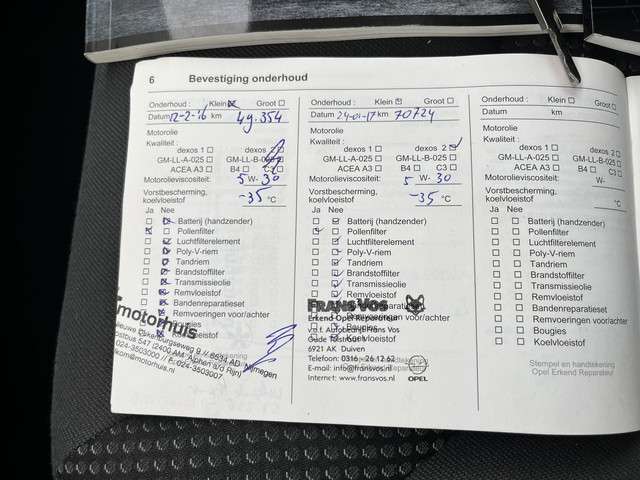 6 Bevestiging onderhoud
Onderhoud : Klein Groot
Datum 12-2-16 km 49.354
Motorolie
Kwaliteit :
dexos 1 dexos 2
GM-LL-A-025 GM-LL-B-025
ACEA A3 B4 C3
Motorolieviscositeit: 5 W- 30
Vorstbescherming,
koelvloeistof -35 °C
Ja Nee
Batterij (handzender)
Pollenfilter
Luchtfilterelement
Poly-V-riem
Tandriem
Brandstoffilter
Transmissieolie
Remvloeistof
Bandenreparatieset
Remvoeringen voor/achter
Bougies
motorhuis
9 // 6534 AD Nijmegen
547 (2400 AM Alphen a/d Rijn)
024-3503000 // F: 024-3503007
Onderhoud : Klein Groot
Datum 24-01-17 km 70724
Motorolie
Kwaliteit :
dexos 1 dexos 2
GM-LL-A-025 GM-LL-B-025
ACEA A3 B4 C3
Motorolieviscositeit: 5 W- 30
Vorstbescherming,
koelvloeistof -35 °C
Ja Nee
Batterij (handzender)
Pollenfilter
Luchtfilterelement
Poly-V-riem
Tandriem
Brandstoffilter
Transmissieolie
Remvloeistof
FRANS VOS
Remvoeringen voor/achter
Erkend Opel Reparateur
Bougies
v.o.f. Autobedrijf Frans Vos
Koelvloeistof
6921 AK Duiven
Telefoon: 0316 - 26 12 62
E-mail: info@fransvos.nl
Internet: www.fransvos.nl
OPEL
Onderhoud : Klein Groot
Datum km
Motorolie
Kwaliteit :
dexos 1 dexos 2
GM-LL-A-025 GM-LL-B-025
ACEA A3 B4 C3
Motorolieviscositeit: W-
Vorstbescherming,
koelvloeistof °C
Ja Nee
Batterij (handzender)
Pollenfilter
Luchtfilterelement
Poly-V-riem
Tandriem
Brandstoffilter
Transmissieolie
Remvloeistof
Bandenreparatieset
Remvoeringen voor/achter
Bougies
Koelvloeistof
Stempel en handtekening
Opel Erkend Reparateur